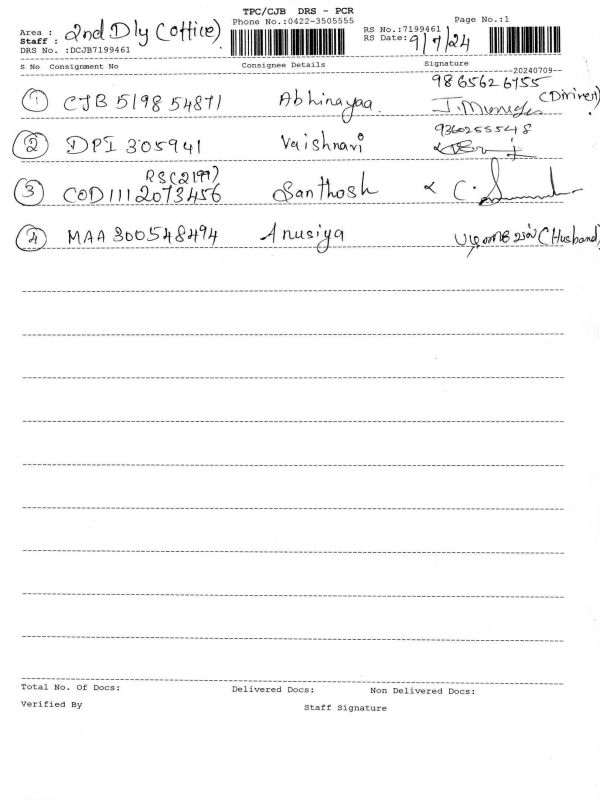 TPC/CJB DRS - PCR
Phone No.:0422-3505555
Page No.:1
Area : 2nd Dly (office)
Staff :
RS No.:7199461
RS Date: 9/7/24
DRS No. :DCJB7199461
S No Consignment No Consignee Details Signature
--20240709--
9865626755
1 CJB 519854871 Abhinayaa (Driver)
9360255548
2 DPI 305941 Vaishnavi
RS(2199)
3 COD1112073456 Santhosh
4 MAA 300548494 Anusiya (Husband)
Total No. Of Docs: Delivered Docs: Non Delivered Docs:
Verified By Staff Signature